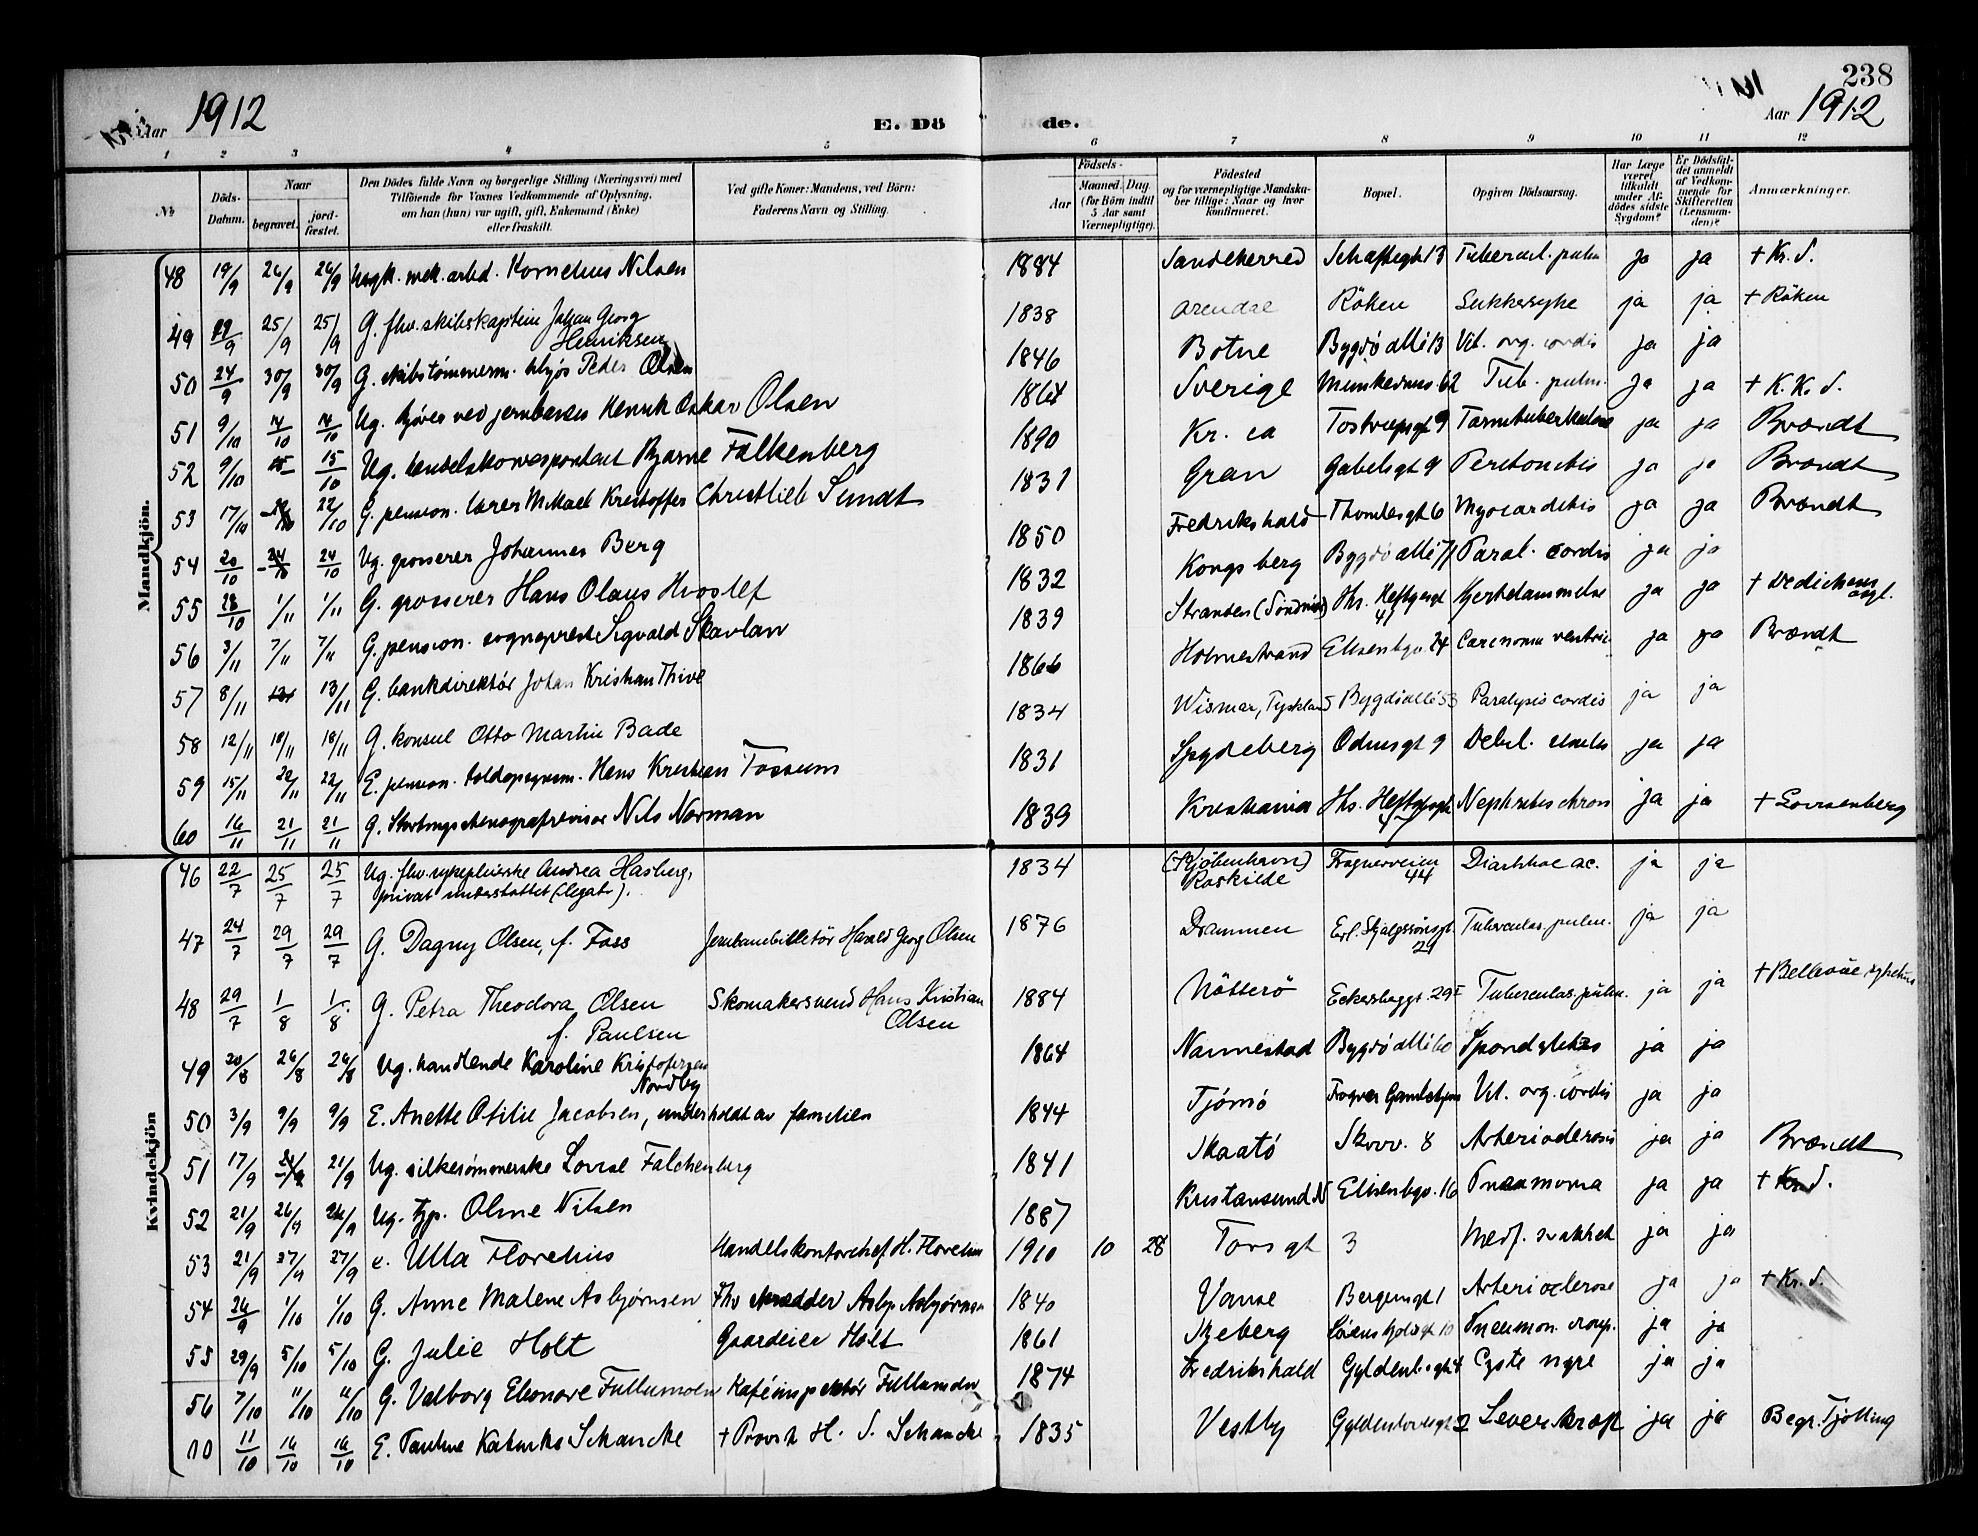 238
Aar 1912
E. Döde.
Aar 1912
1 2 3 4 5 6 7 8 9 10 11 12
№
Döds-Datum.
Naar
begravet.
jord-fæstet.
Den Dödes fulde Navn og borgerlige Stilling (Næringsvei) med
Tilföiende for Voxnes Vedkommende af Oplysning,
om han (hun) var ugift, gift, Enkemand (Enke)
eller fraskilt.
Ved gifte Koner: Mandens, ved Börn:
Faderens Navn og Stilling.
Födsels-
Aar
Maaned. Dag.
(for Börn indtil
5 Aar samt
Værnepligtige).
Födested
og for værnepligtige Mandska-
ber tillige: Naar og hvor
konfirmeret.
Bopæl.
Opgiven Dödsaarsag.
Har Læge
været
tilkaldt
under Af-
dödes sidste
Sygdom?
Er Dödsfal-
det anmeldt
af Vedkom-
mende for
Skifteretten
(Lensman-
den)?
Anmærkninger.
Mandkjön.
48 19/9 26/9 26/9 Kornelius Nilsen 1884 Sandeherred Schaftsgt 13 Tubercul. pulm ja ja + Kr. S.
49 25/9 25/9 G. fhv. skibskaptein Johan Georg
Henriksen 1838 Arendal Röken Sukkersyke ja ja + Röken
50 24/9 30/9 30/9 G. skibstömmerm. Peder Olsen 1846 Botne Bygdö allé 13 Vit. org. cordis ja ja
51 9/10 14/10 14/10 Ug. Henrik Oskar Olsen 1864 Sverige Munkedamsv 62 Tub. pulm. ja ja + K. K. S.
52 9/10 15 15/10 Ug. handelskorrespondent Bjarne Falkenberg 1890 Kr. ia Tostrupsgt 9 Tarmtuberkulose ja ja Brændt
53 17/10 22/10 G. pension. lærer Mikael Kristoffer Christlieb Sundt 1831 Gran Gabelsgt 9 Peritonitis ja ja Brændt
54 20/10 24/10 24/10 Ug. grosserer Johannes Berg 1850 Fredrikshald Thomlesgt 6 Myocarditis ja ja Brændt
55 28/10 1/11 1/11 G. grosserer Hans Olaus Hvoslef 1832 Kongsberg Bygdö allé 71 Paral. cordis ja ja
56 3/11 7/11 7/11 G. pension. sogneprest Sigvald Skavlan 1839 Stranden Hs. Heftyesgt 41 Hjertelammelse ja ja + Dedichens asyl.
57 8/11 13/11 G. bankdirektör Johan Kristian Thive 1866 Holmestrand Elisenbgv. 24 Carcinoma ventric ja ja Brændt
58 12/11 18/11 18/11 G. konsul Otto Martin Bade 1834 Wismar, Tyskland Bygdöallé 53 Paralysis cordis ja ja
59 15/11 22/11 22/11 E. pension. toldopsynsm. Hans Kristian Fossum 1831 Spydeberg Odinsgt 9 Debil. senilis ja ja
60 16/11 21/11 21/11 G. Stortingsstenografrevisor Nils Norman 1839 Kristiania Hs. Heftyesgt 47 Nephritis chron ja ja + Lovisenberg
Kvindekjön
46 22/7 25/7 25/7 Ug. fhv. sykepleierske Andrea Hasberg,
privat understöttet (legat). 1834 (Kjöbenhavn)
Roskilde Frognerveien
44 Diarrhoe ac. ja ja
47 24/7 29/7 29/7 G. Dagny Olsen, f. Foss Jernbanebilletör Harald Georg Olsen 1876 Drammen Erl. Skjalgssönsgt
21 Tuberculos. pulm. ja ja
48 29/7 1/8 1/8 G. Petra Theodora Olsen
f. Paulsen Skomakersvend Hans Kristian
Olsen 1884 Nötterö Eckersbggt. 29 I Tuberculos. pulm. ja ja + Bellevue sykehus
49 20/8 26/8 26/8 Ug. handlende Karoline Kristofersen
Nordby 1864 Nannestad Bygdö allé 60 Spondylitis ja ja
50 3/9 9/9 9/9 E. Anette Otilie Jacobsen, underholdt av familien 1844 Tjömö Frogner Gamlehjem Vit. org. cordis ja ja
51 17/9 21/9 21/9 Ug. silkesömmerske Lovise Falchenberg 1841 Skaatö Skovv. 8 Arteriosclerosis ja ja Brændt
52 21/9 26/9 26/9 Ug. typ. Oline Nilsen 1887 Kristiansund N Elisenbgv. 16 Pneumonia ja ja + Kr. S.
53 21/9 27/9 27/9 e. Ulla Florelius Handelskontorchef H. Florelius 1910 10 28 Torsgt 3 Medf. svakhet ja ja
54 26/9 1/10 1/10 G. Anne Malene Asbjörnsen Fhv skrædder Asbj. Asbjörnsen 1840 Vanse Bergumsgt 1 Arteriosclerose ja ja + Kr. S.
55 29/9 5/10 5/10 G. Julie Holt Gaardeier Holt 1861 Skeberg 10 Pneumon. croup. ja ja
56 7/10 11/10 11/10 G. Valborg Eleonore Fullumoen Kaféinspektör Fullumoen 1874 Fredrikshald Gyldenlövesgt 4 Cyste nyre ja ja
11/10 16/10 16/10 E. Pauline Katinka Schancke + Provst H. S. Schancke 1835 Vestby Gyldenlövesgt 2 Leverkræft ja ja Begr. Tjölling